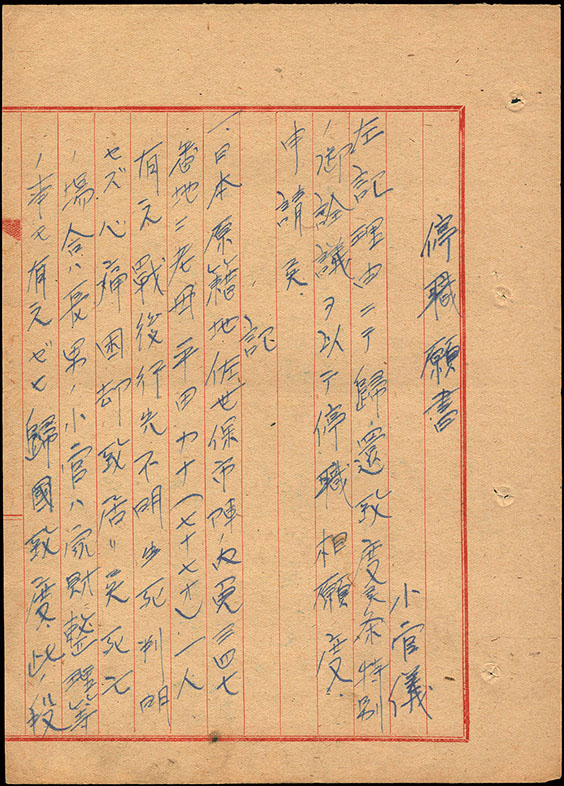 停職願書
小官儀
左記理由ニテ歸還致度候条特別
ノ御詮議ヲ以テ停職相願度
申請候
記
一、日本原籍地佐世保市陣ノ内免三四七
番地ニ老母平田カナ(七十七才)一人
有之戰後行先不明生死判明
セズ心痛困却致居リ候死亡
ノ場合ハ長男ノ小官ハ家財整理等
ノ事モ有之ゼヒ歸國致度此ノ段